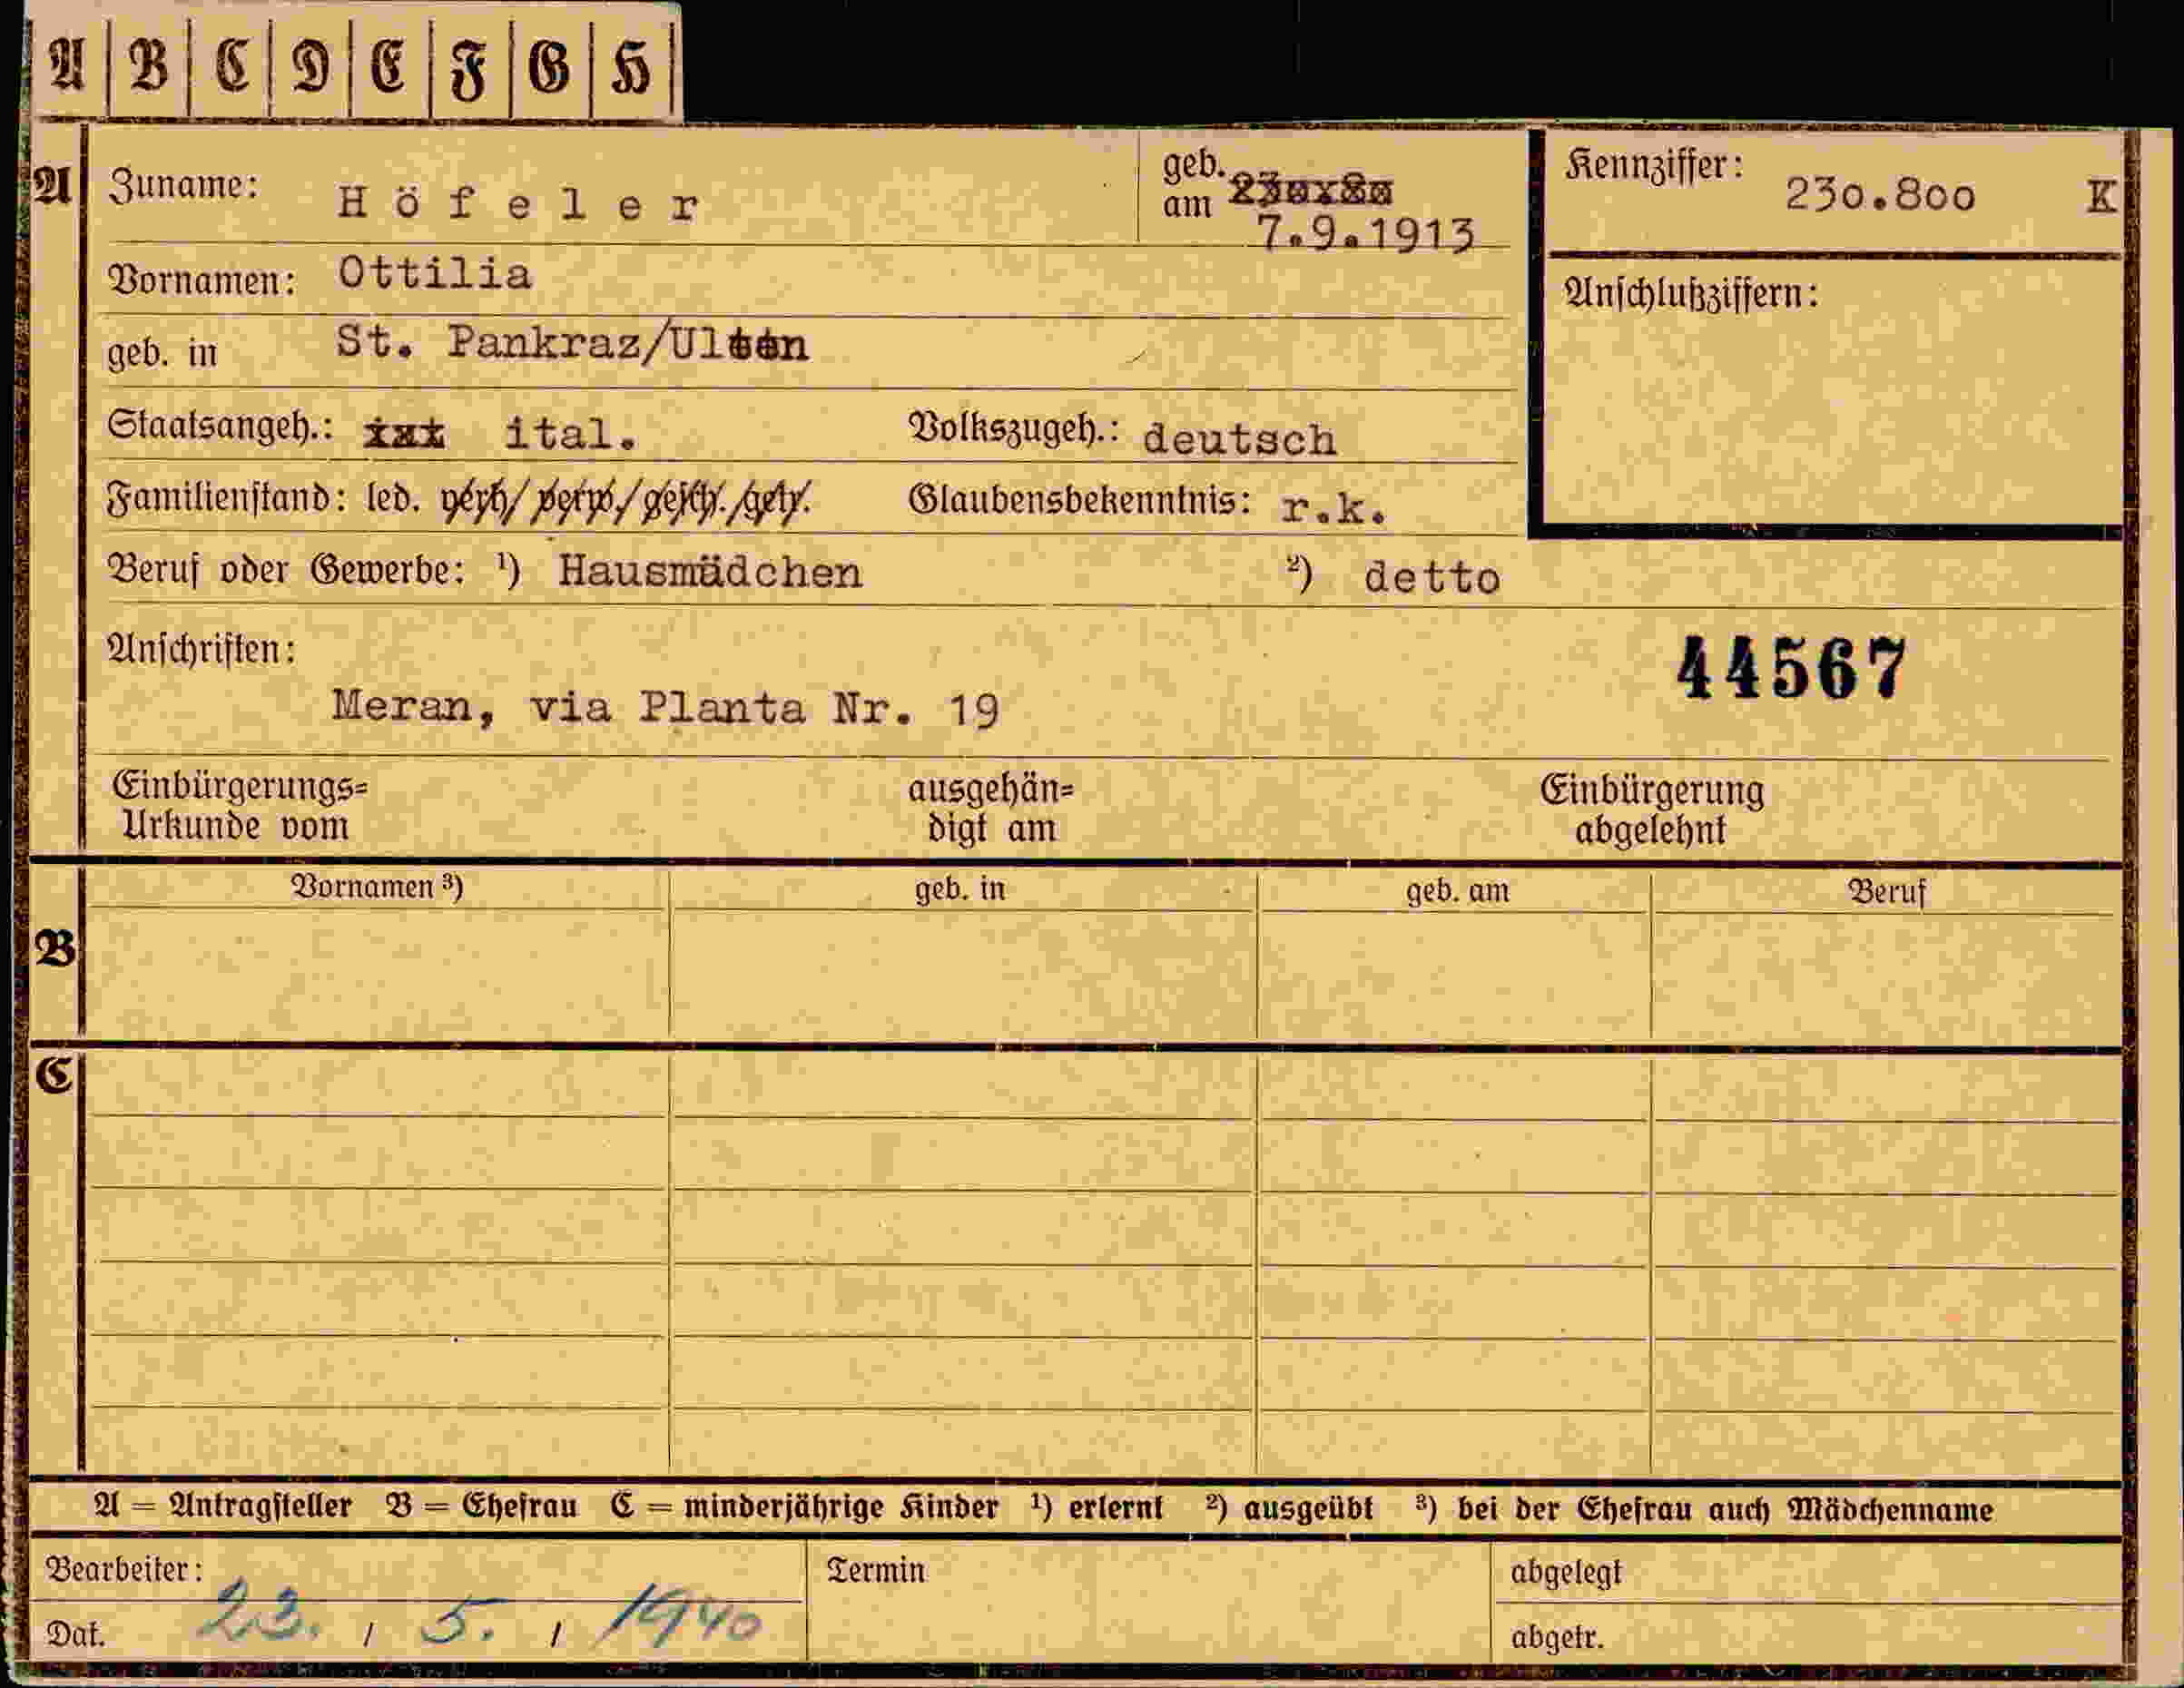 A B C D E F G H
A Zuname: Höfeler geb. am 7.9.1913 Kennziffer: 230.800 K
Vornamen: Ottilia Anschlußziffern:
geb. in St. Pankraz/Ulten
Staatsangeh.: ital. Volkszugeh.: deutsch
Familienstand: led. verh/ verw./ gesch./getr. Glaubensbekenntnis: r.k.
Beruf oder Gewerbe: ¹) Hausmädchen ²) detto
Anschriften: 44567
Meran, via Planta Nr. 19
Einbürgerungs= ausgehän= Einbürgerung
Urkunde vom digt am abgelehnt
Vornamen ³) geb. in geb. am Beruf
B
C
A = Antragsteller B = Ehefrau C = minderjährige Kinder ¹) erlernt ²) ausgeübt ³) bei der Ehefrau auch Mädchenname
Bearbeiter: Termin abgelegt
Dat. 23. / 5. / 1940 abgetr.